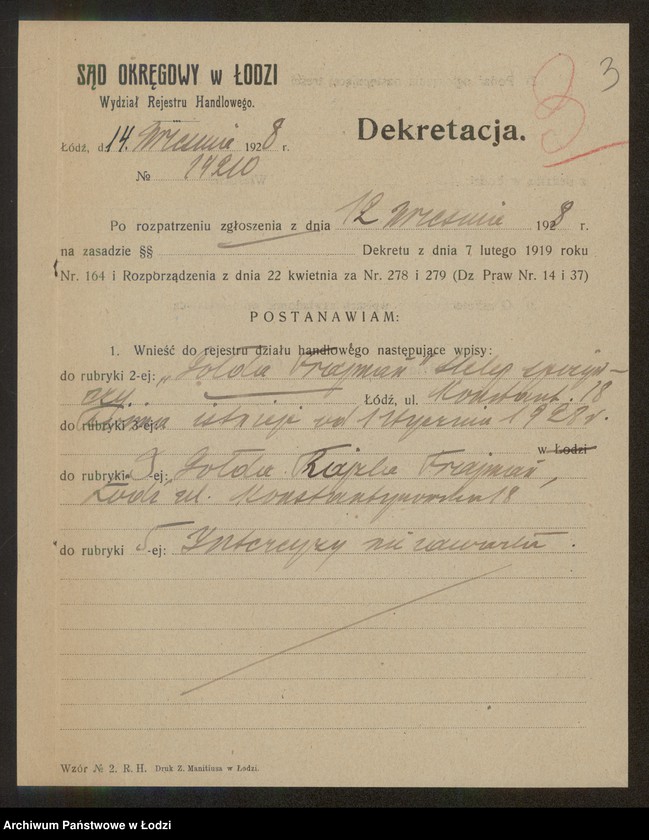 SĄD OKRĘGOWY w ŁODZI
Wydział Rejestru Handlowego.
3
3
Łódź, d. 14. Września 1928 r.
Dekretacja.
№ 14210
Po rozpatrzeniu zgłoszenia z dnia 12 Września 1928 r.
na zasadzie §§ Dekretu z dnia 7 lutego 1919 roku
Nr. 164 i Rozporządzenia z dnia 22 kwietnia za Nr. 278 i 279 (Dz Praw Nr. 14 i 37)
POSTANAWIAM:
1. Wnieść do rejestru działu handlowego następujące wpisy:
do rubryki 2-ej: „Gołda Frajman" sklep spożyw-
czy. Łódź, ul. Konstant. 18
do rubryki 3-ej: Firma istnieje od 1 stycznia 1928 r.
w Łodzi
do rubryki 3-ej: Gołda Rajzla Frajman,
Łódź, ul. Konstantynowska 18
do rubryki 5-ej: Intercyzy nie zawarła.
Wzór № 2. R. H. Druk Z. Manitiusa w Łodzi.
Archiwum Państwowe w Łodzi